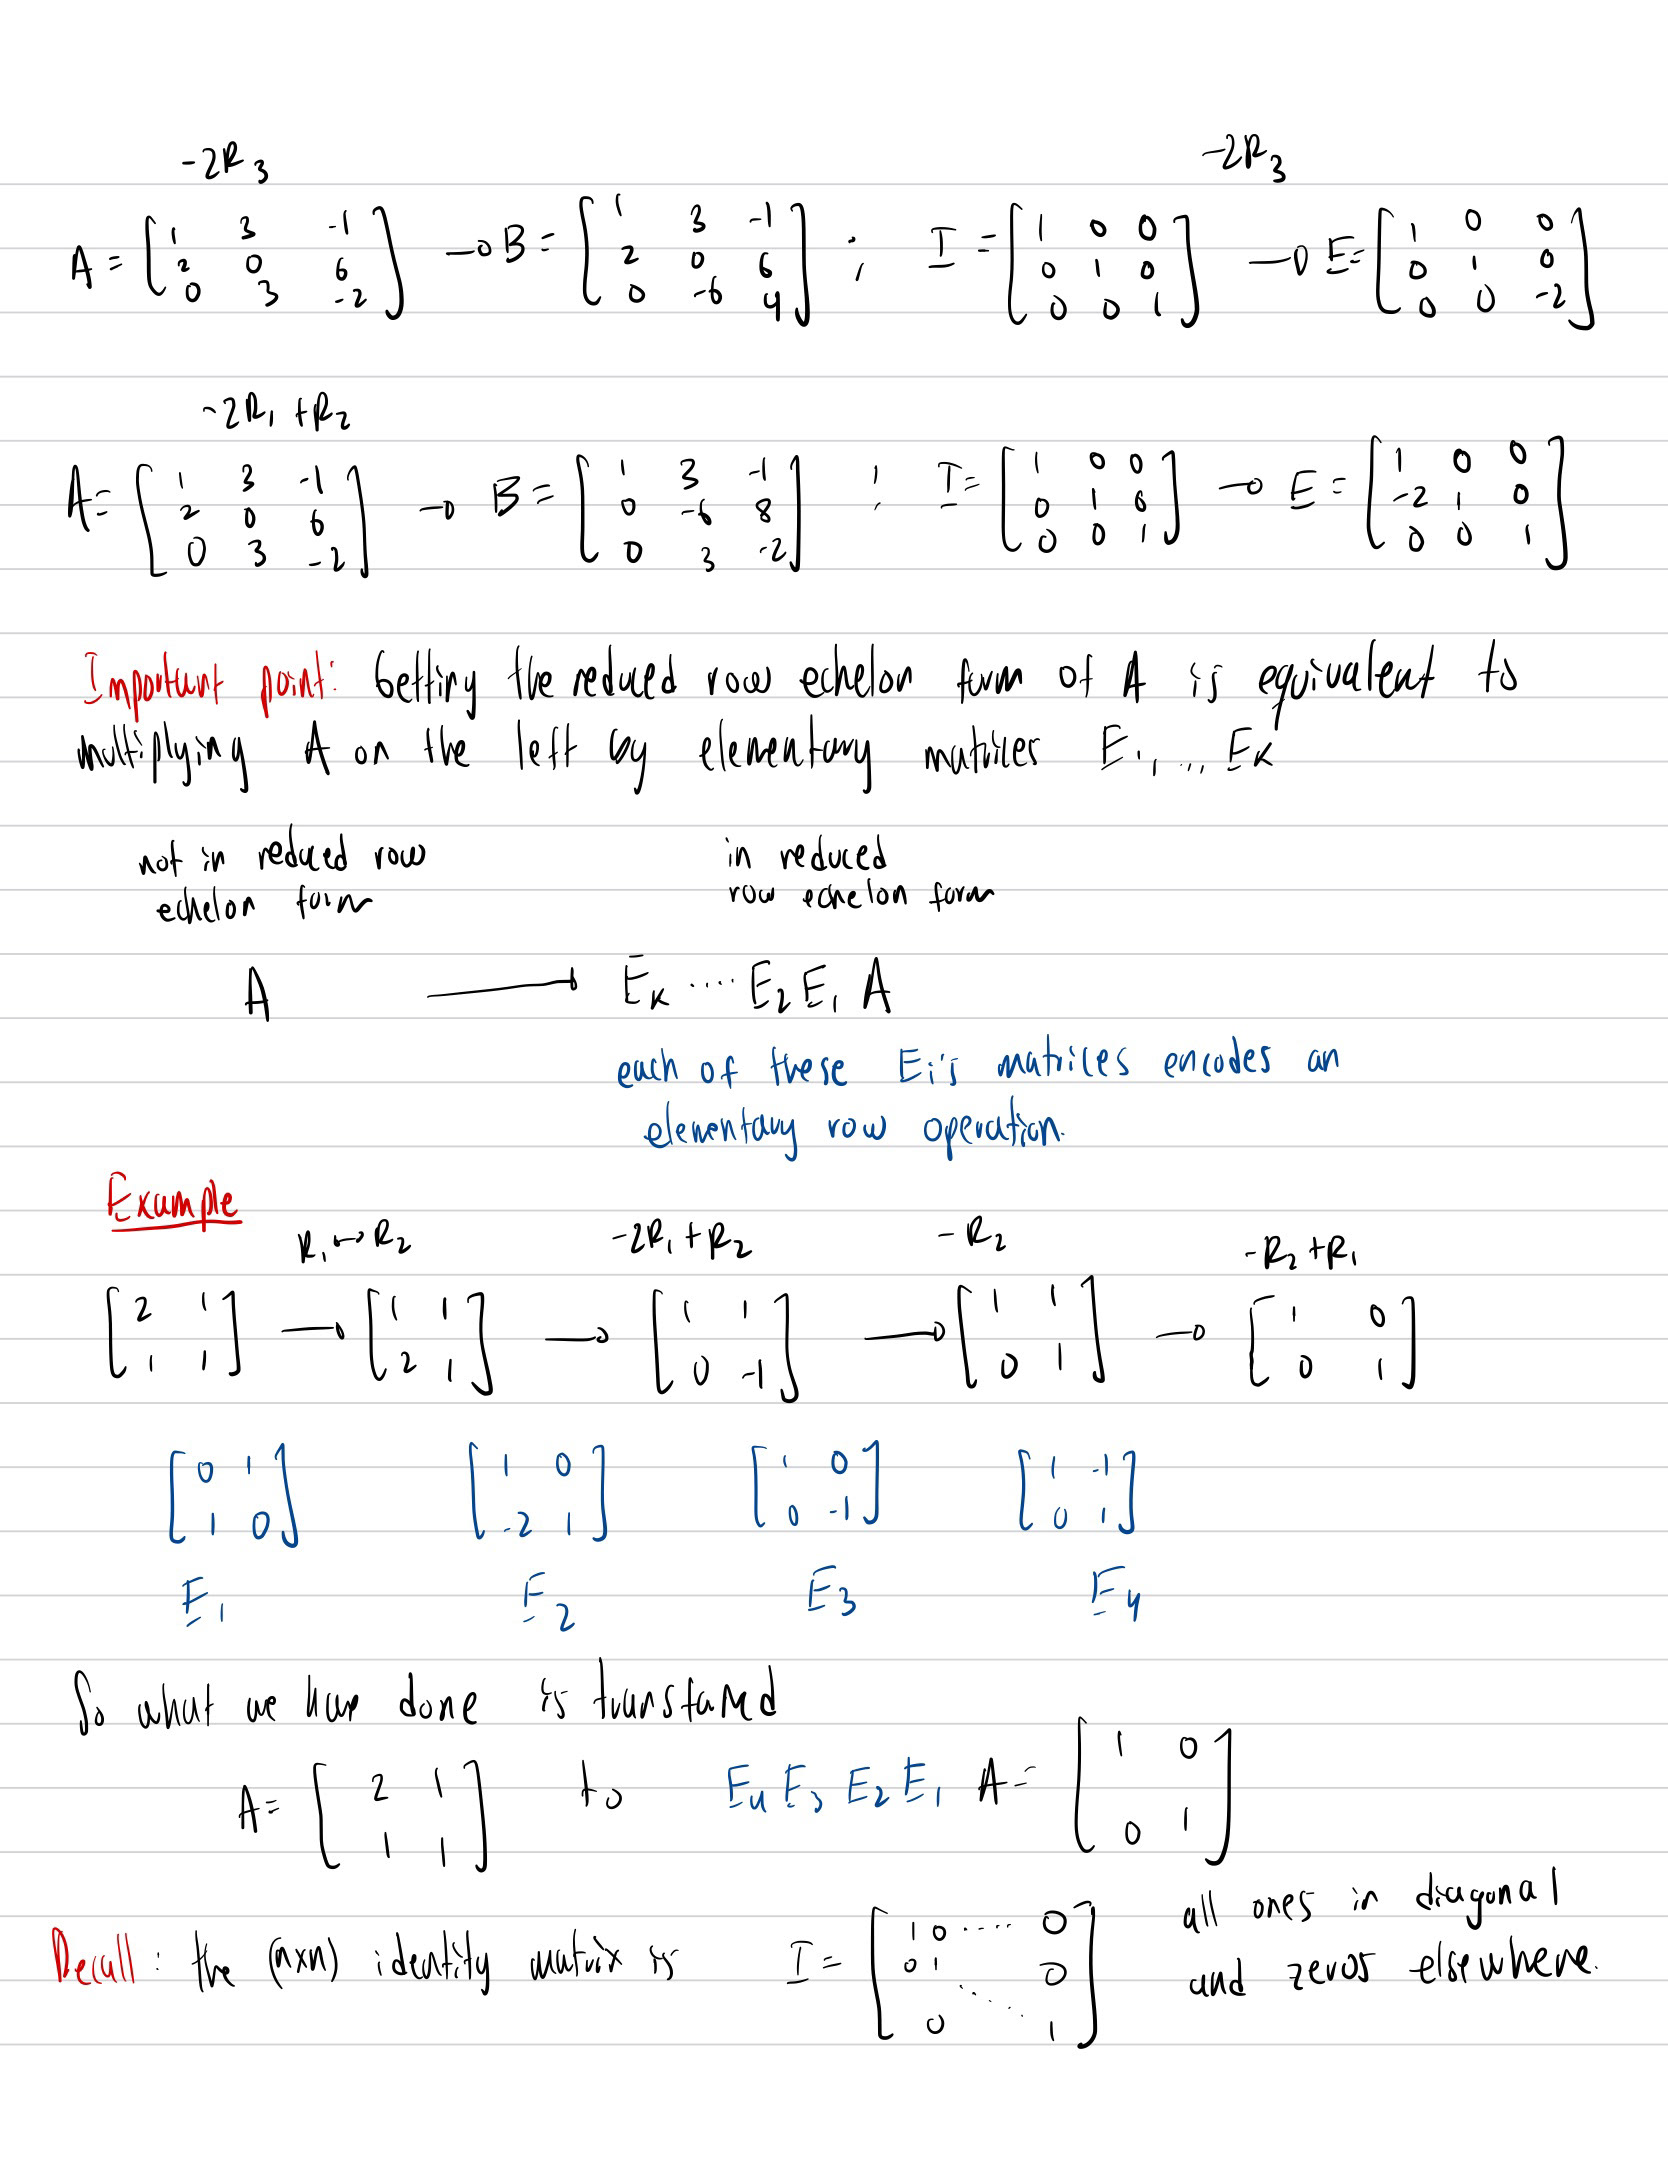 -2R₃ -2R₃
A = [1 3 -1; 2 0 6; 0 3 -2] → B = [1 3 -1; 2 0 6; 0 -6 4] ; I = [1 0 0; 0 1 0; 0 0 1] → E = [1 0 0; 0 1 0; 0 0 -2]
-2R₁ + R₂
A = [1 3 -1; 2 0 6; 0 3 -2] → B = [1 3 -1; 0 -6 8; 0 3 -2] ; I = [1 0 0; 0 1 0; 0 0 1] → E = [1 0 0; -2 1 0; 0 0 1]
Important point: Getting the reduced row echelon form of A is equivalent to
multiplying A on the left by elementary matrices E₁, ..., Eₖ
not in reduced row
echelon form
in reduced
row echelon form
A → Eₖ ···· E₂ E₁ A
each of these Ei's matrices encodes an
elementary row operation.
Example
R₁ ↔ R₂ -2R₁ + R₂ -R₂ -R₂ + R₁
[2 1; 1 1] → [1 1; 2 1] → [1 1; 0 -1] → [1 1; 0 1] → [1 0; 0 1]
[0 1; 1 0] [1 0; -2 1] [1 0; 0 -1] [1 -1; 0 1]
E₁ E₂ E₃ E₄
So what we have done is transformed
A = [2 1; 1 1] to E₄ E₃ E₂ E₁ A = [1 0; 0 1]
Recall: the (n×n) identity matrix is I = [1 0 ···· 0; 0 1 0; ····; 0 1] all ones in diagonal
and zeros elsewhere.